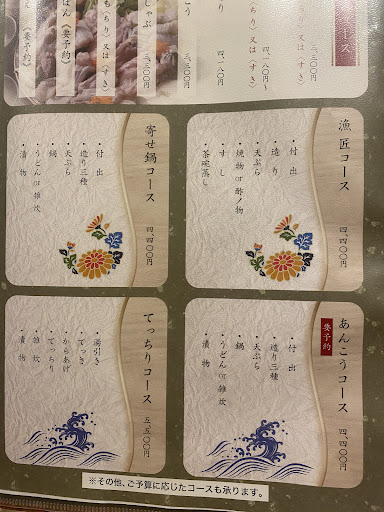 コース
(ちり)又は(すき)
三、三〇〇円
四、一八〇円〜
も(ちり)又は(すき)
しゃぶ
三、三〇〇円
(要予約)
漁匠コース
四、四〇〇円
・付出
・造り
・天ぷら
・焼物or酢ノ物
・すし
・茶碗蒸し
寄せ鍋コース
四、四〇〇円
・付出
・造り三種
・天ぷら
・鍋
・うどんor雑炊
・漬物
あんこうコース
要予約
四、四〇〇円
・付出
・造り三種
・天ぷら
・鍋
・うどんor雑炊
・漬物
てっちりコース
五、五〇〇円
・湯引き
・てっさ
・からあげ
・てっちり
・雑炊
・漬物
※その他、ご予算に応じたコースも承ります。